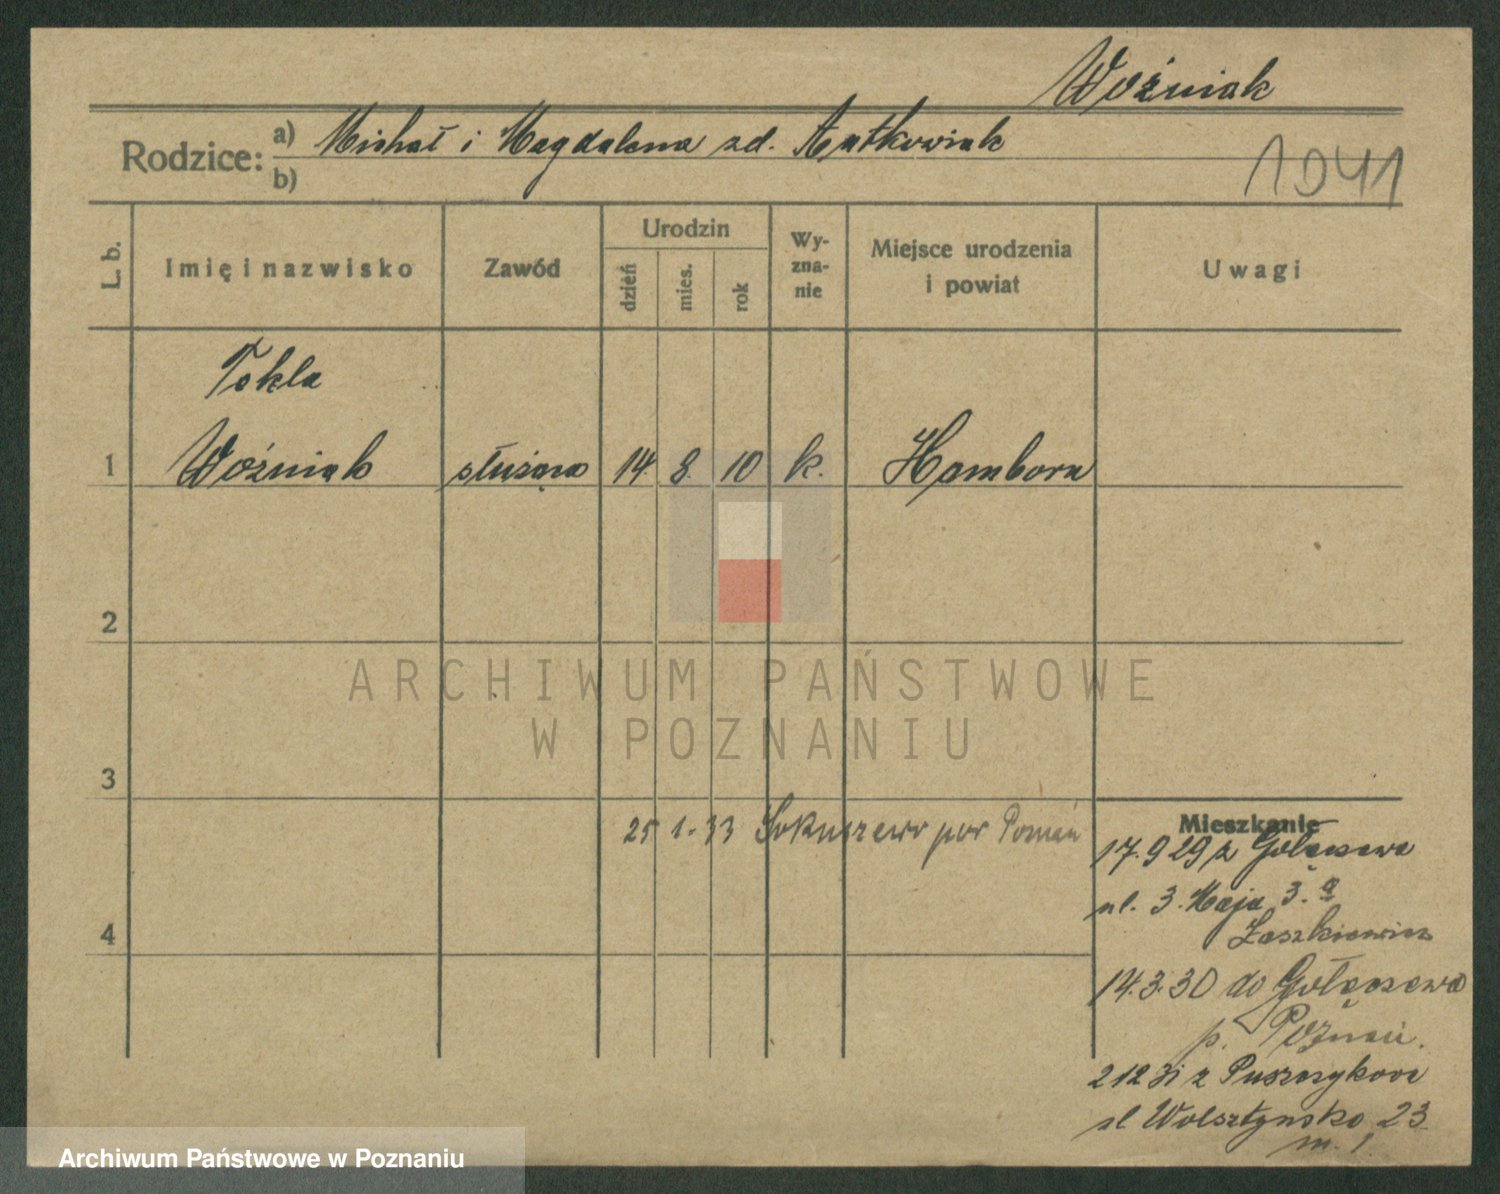 Woźniak
Rodzice: a) Michał i Magdalena zd. Ratkowiak
b)
1041
L. b.
Imię i nazwisko
Zawód
Urodzin
dzień
mies.
rok
Wy-
zna-
nie
Miejsce urodzenia
i powiat
Uwagi
Tekla
1 Woźniak służąca 14. 8. 10 k. Hamborn
2
ARCHIWUM PAŃSTWOWE
W POZNANIU
3
Mieszkanie
25 1. 33 pow Poznań
17.9 29 z Gołęczewa
ul. 3. Maja 3. a
Łaszkiewicz
4
14.3.30 do Gołęczewa
p. Poznań.
2 12 31 z Puszczykowa
ul Wolsztyńska 23
m. 1
Archiwum Państwowe w Poznaniu